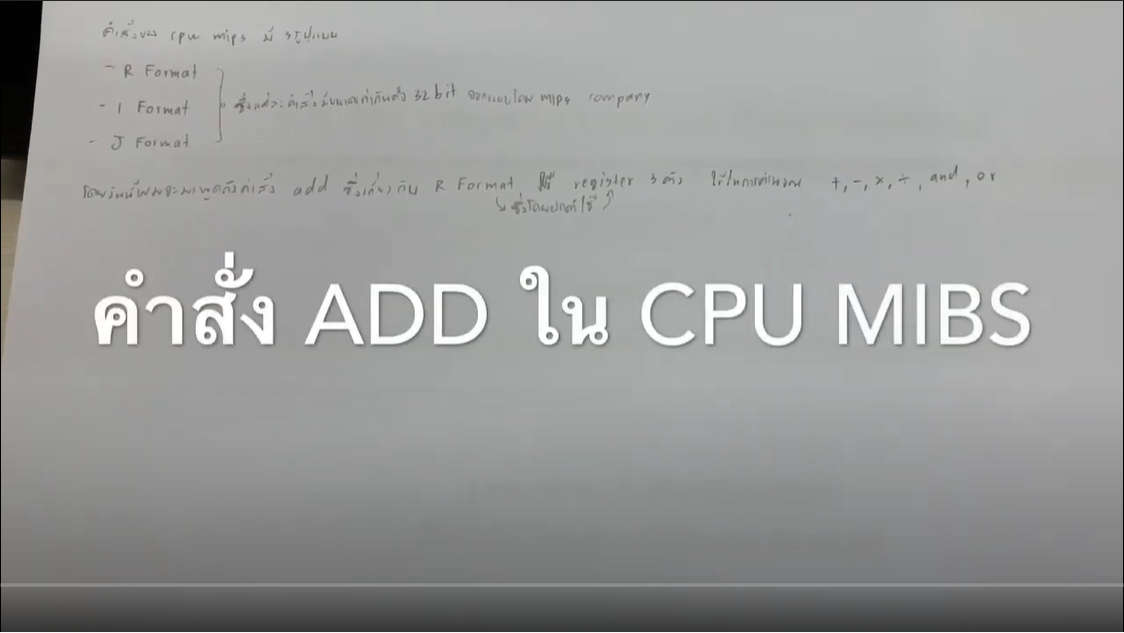 คำสั่งของ cpu mips มี 3 รูปแบบ
- R Format
- I Format
- J Format
ซึ่งแต่ละคำสั่งมีขนาดเท่ากันคือ 32 bit ออกแบบโดย mips company
โดยวันนี้ผมจะมาพูดถึงคำสั่ง add ซึ่งเกี่ยวกับ R Format, register 3 ตัว ใช้ในการคำนวณ +, -, ×, ÷, and, or
ซึ่งโดยปกติใช้
คำสั่ง ADD ใน CPU MIBS